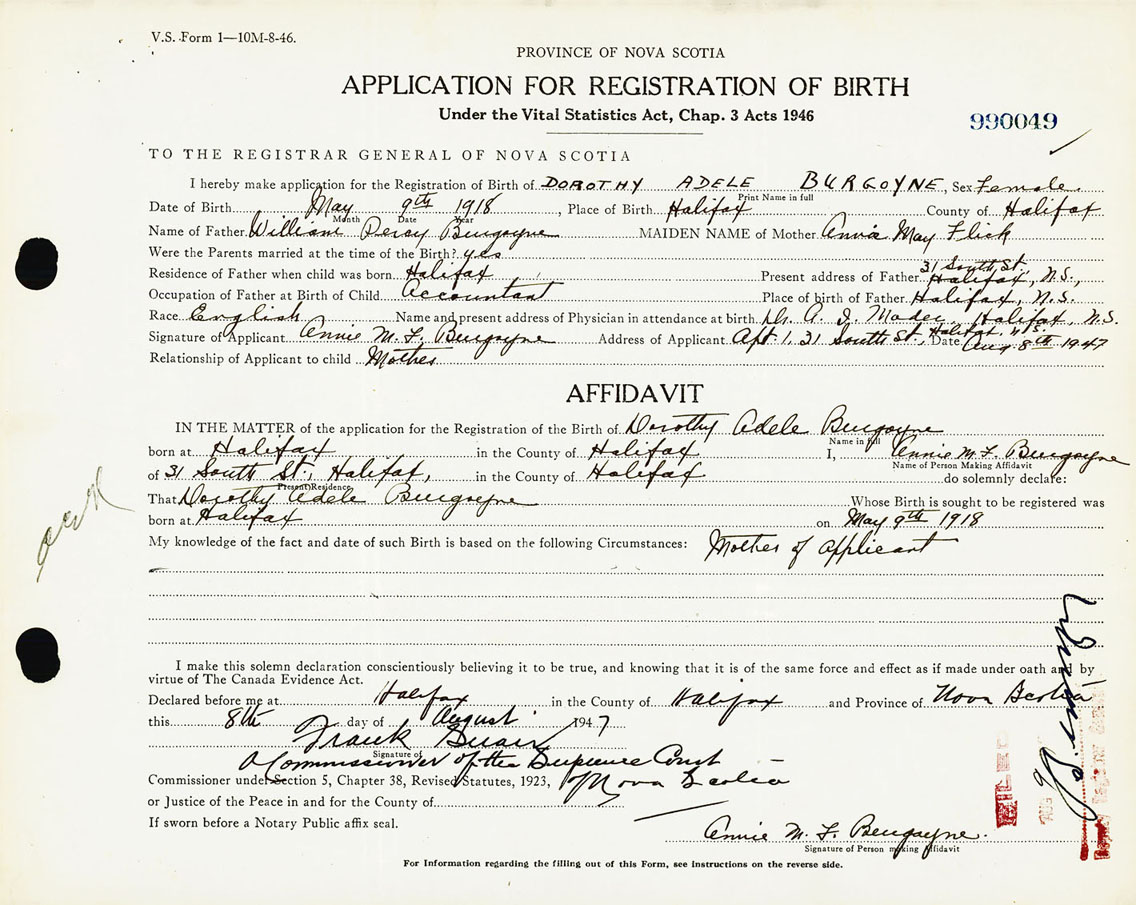 V.S. Form 1—10M-8-46.
PROVINCE OF NOVA SCOTIA
APPLICATION FOR REGISTRATION OF BIRTH
Under the Vital Statistics Act, Chap. 3 Acts 1946
990049
TO THE REGISTRAR GENERAL OF NOVA SCOTIA
I hereby make application for the Registration of Birth of DOROTHY ADELE BURGOYNE, Sex Female
Print Name in full
Date of Birth May 9th 1918, Place of Birth Halifax County of Halifax
Month Date Year
Name of Father William Percy Burgoyne MAIDEN NAME of Mother Annie May Flick
Were the Parents married at the time of the Birth? yes
Residence of Father when child was born Halifax Present address of Father 31 South St., Halifax, N.S.,
Occupation of Father at Birth of Child Accountant Place of birth of Father Halifax, N.S.
Race English Name and present address of Physician in attendance at birth Dr. A. I. Mader, Halifax, N.S.
Signature of Applicant Annie M. F. Burgoyne Address of Applicant Apt. 1, 31 South St., Halifax, N.S. Date Aug. 8th 1947
Relationship of Applicant to child Mother
AFFIDAVIT
IN THE MATTER of the application for the Registration of the Birth of Dorothy Adele Burgoyne
Name in full
born at Halifax in the County of Halifax I, Annie M. F. Burgoyne
Name of Person Making Affidavit
of 31 South St., Halifax, in the County of Halifax do solemnly declare:
Present Residence
That Dorothy Adele Burgoyne Whose Birth is sought to be registered was
born at Halifax on May 9th 1918
My knowledge of the fact and date of such Birth is based on the following Circumstances: Mother of applicant
I make this solemn declaration conscientiously believing it to be true, and knowing that it is of the same force and effect as if made under oath and by
virtue of The Canada Evidence Act.
Declared before me at Halifax in the County of Halifax and Province of Nova Scotia
this 8th day of August 1947
Frank
Signature of
A Commissioner of the Supreme Court
Commissioner under Section 5, Chapter 38, Revised Statutes, 1923, of Nova Scotia
or Justice of the Peace in and for the County of
If sworn before a Notary Public affix seal.
Annie M. F. Burgoyne.
Signature of Person making Affidavit
For Information regarding the filling out of this Form, see instructions on the reverse side.
FILED